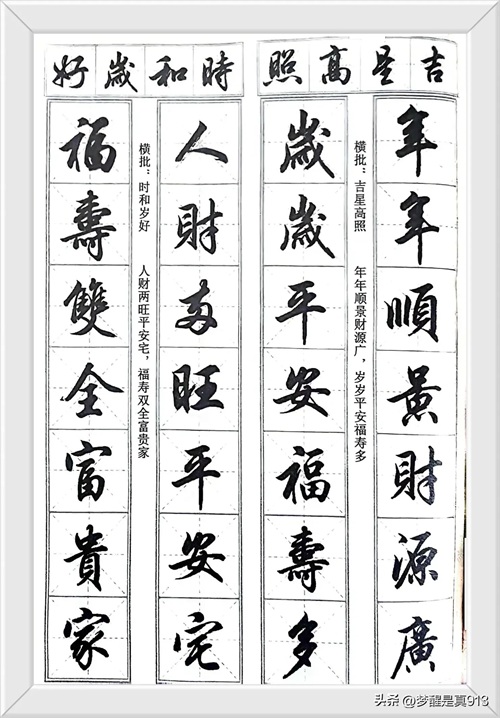 吉星高照
年年順景財源廣
横批：吉星高照
年年顺景财源广，岁岁平安福寿多
歲歲平安福壽多
時和歲好
人財两旺平安宅
横批：时和岁好
人财两旺平安宅，福寿双全富贵家
福壽雙全富貴家
头条 @梦醒是真913